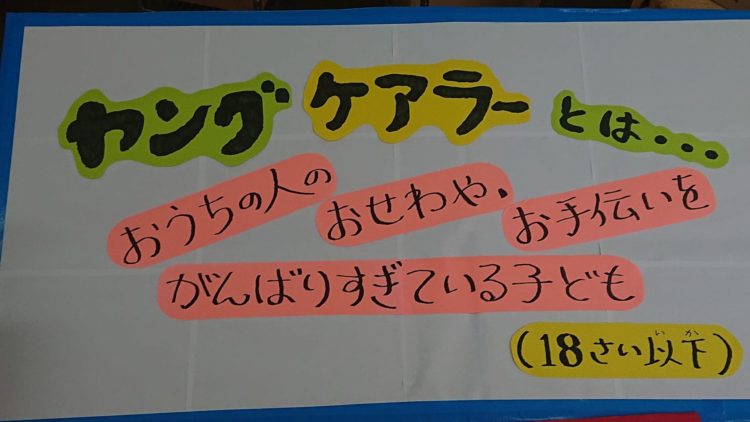 ヤングケアラーとは・・・
おうちの人のおせわや、お手伝いを
がんばりすぎている子ども
(18さい以下)
いか